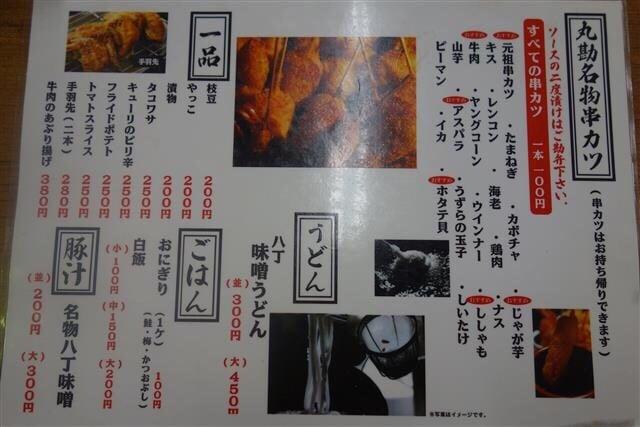 丸勘名物串カツ
(串カツはお持ち帰りできます)
ソースの二度漬けはご勘弁下さい。
すべての串カツ 一本 100円
おすすめ
元祖串カツ ・たまねぎ ・カボチャ ・じゃが芋
おすすめ
キス ・レンコン ・海老 ・鶏肉 ・ナス
おすすめ
牛肉 ・ヤングコーン ・ウインナー ・ししゃも
おすすめ
山芋 ・アスパラ ・うずらの玉子 ・しいたけ
おすすめ
ピーマン ・イカ ・ホタテ貝
おすすめ
※写真はイメージです。
一品
手羽先
枝豆 200円
やっこ 200円
漬物 200円
タコワサ 250円
キューリのピリ辛 250円
フライドポテト 250円
トマトスライス 250円
手羽先(二本) 280円
牛肉のあぶり揚げ 380円
うどん
八丁
味噌うどん
(並)300円 (大)450円
ごはん
おにぎり (1ケ) 100円
(鮭・梅・かつおぶし)
白飯
(小)100円 (中)150円 (大)200円
豚汁
名物八丁味噌
(並)200円 (大)300円